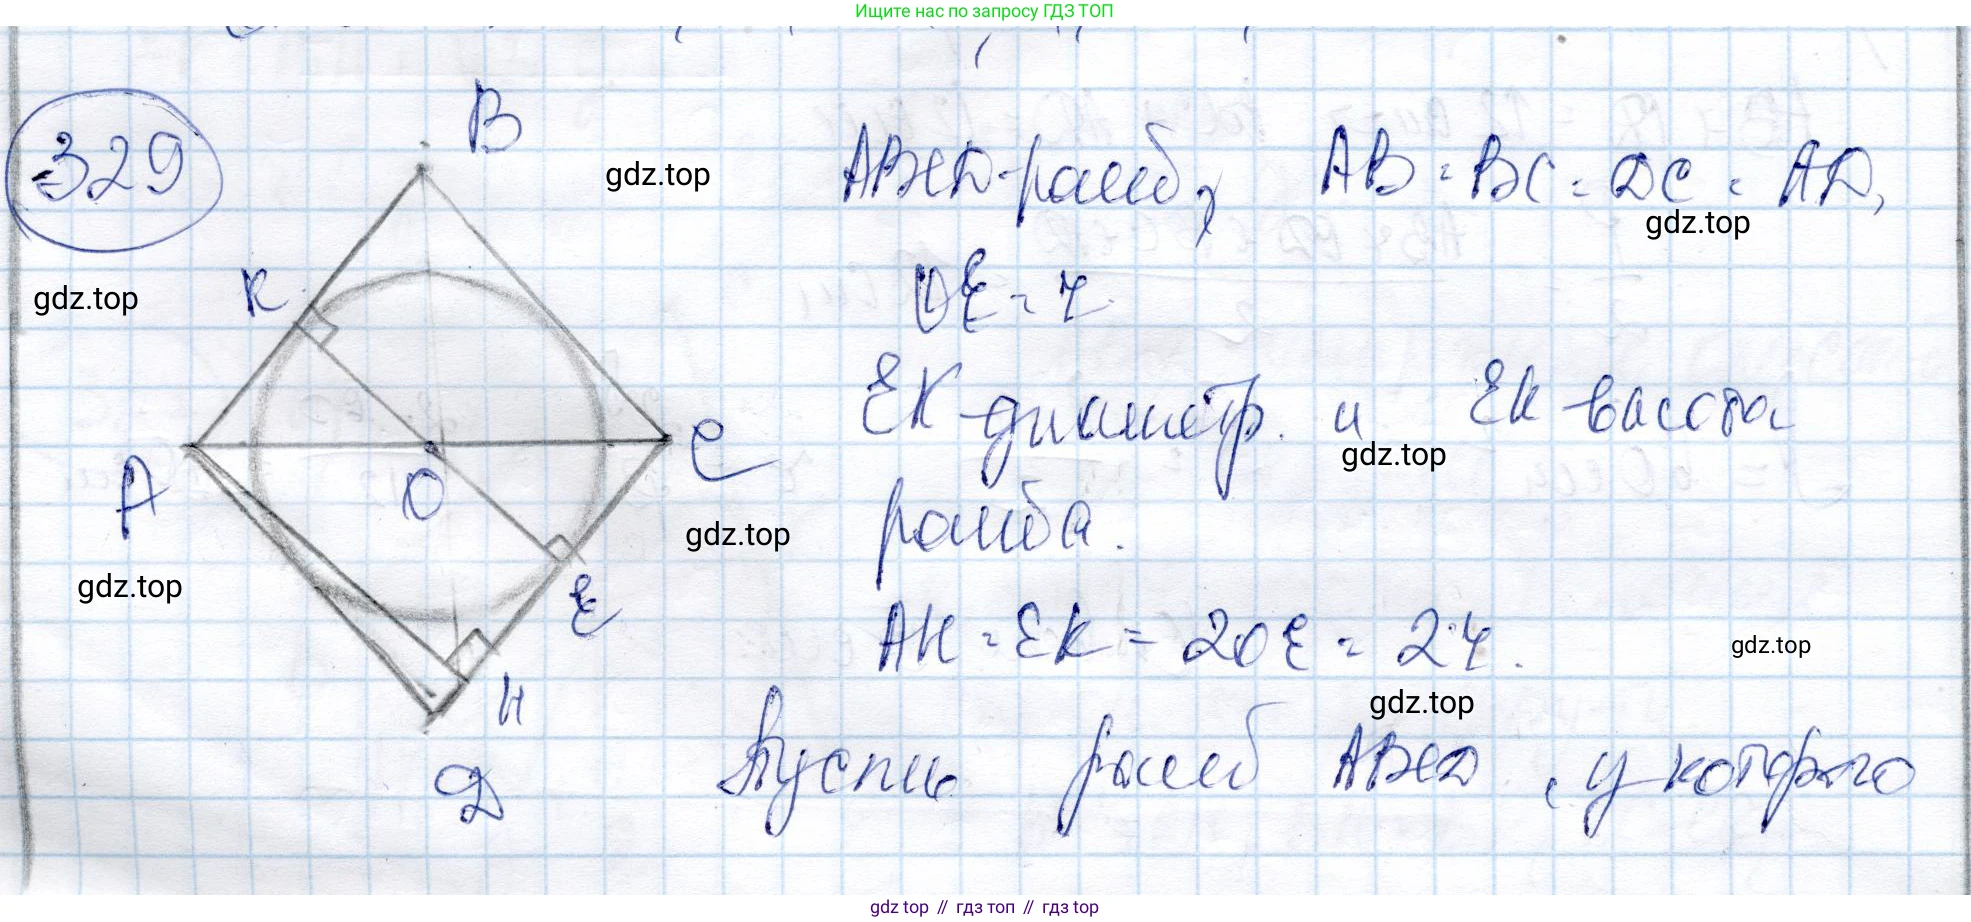 Ищите нас по запросу ГДЗ ТОП
329
B
gdz.top
ABCD - ромб, AB = BC = DC = AD,
gdz.top
K
gdz.top
OE = r
EK - диаметр. и EK высота
gdz.top
A
O
C
gdz.top
ромба.
gdz.top
E
AH = EK = 2OE = 2r.
gdz.top
gdz.top
H
D
Пусть ромб ABCD, у которого
gdz.top // гдз топ // гдз topp